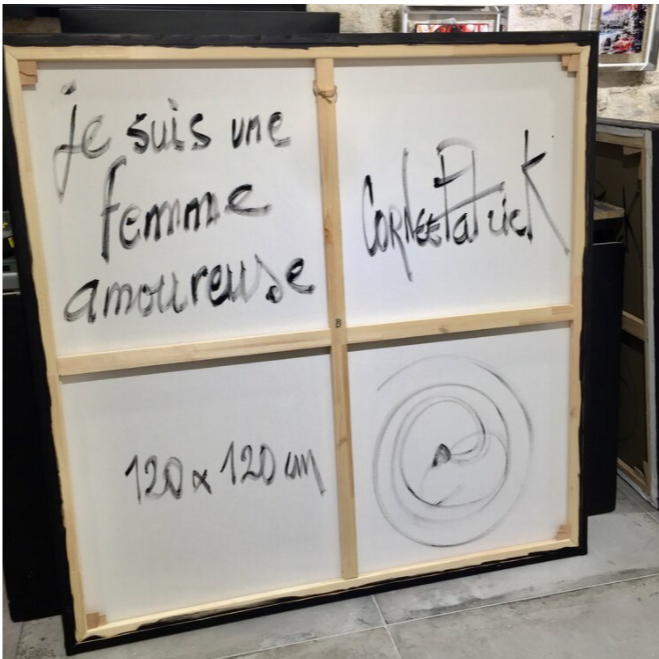 je suis une
femme
amoureuse
Cornée Patrick
120 x 120 cm